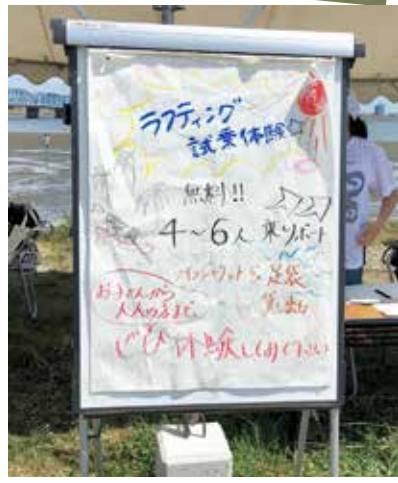 ラフティング
試乗体験☆
無料!!
4～6人 乗りボート
足袋
貸出
お子さんから
大人の方まで、
ぜひ体験してみてください